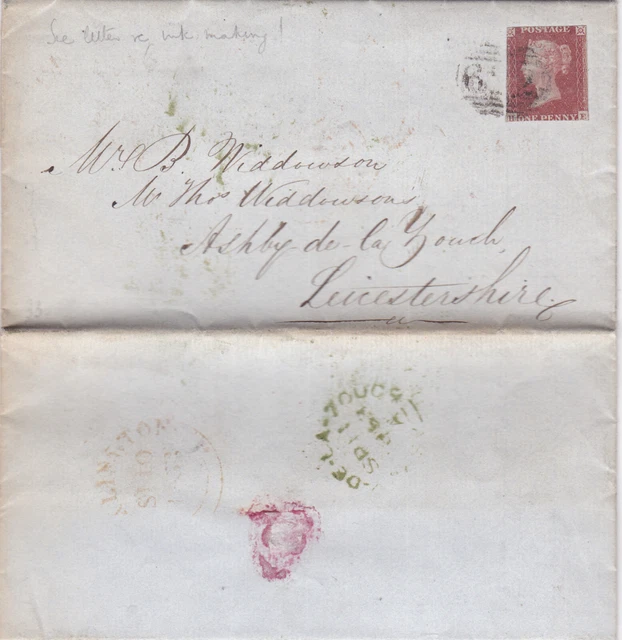 See letter re, ink making!
POSTAGE
ONE PENNY
Mr B. Widdowson
Mr Thos Widdowsons
Ashby-de-la-Zouch,
Leicestershire.
DE-LA-ZOUCH